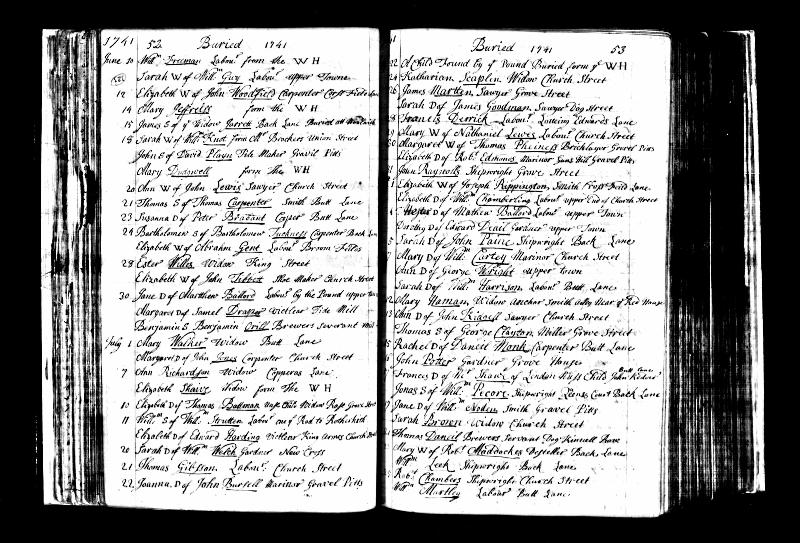 1741 52 Buried 1741
June 10 Will.m Freeman Labou.r from the W H
Sarah W of Will.m Guy Labou.r upper Towne
12 Elizabeth W of John Woodfield Carpenter
14 Mary Jeffreiss from the W H
15 James S of Widow Jarrett Back Lane Buried at
19 Sarah W of Will Knot from Brockers Union Street
John S of David Playn Pile Maker Gravil Pitts
Mary Dudswell form the W H
20 Ann W of John Lewis Sawyer Church Street
21 Thomas S of Thomas Carpenter Smith Butt Lane
23 Susanna D of Peter Bradant Cooper Butt Lane
24 Bartholemew S of Bartholomew Tuckness Carpenter Back Lane
Elizabeth W of Abraham Gent Labou.r Broom Fields
28 Ester Willis Widow King Street
Elizabeth W of John Tibbet Shoe Maker Church Street
30 Jane D of Matthew Ballord Labou.r by the Pound upper
Margaret D of Samel Draper Victlear Tide Mill
Benjamin S Benjamin Orill Brewers Servant
July 1 Mary Walker Widow Butt Lane
Margaret D of John Jones Carpenter Church Street
7 Ann Richardson Widow Copperas Lane
Elizabeth Shawe Widow form the W H
10 Elizabeth D of Thomas Bateman Widow
11 Will.m S of Will.m Strutton Labou.r Rad to
Elizabeth D of Edward Harding Victlear King Armes Church
20 Sarah D of Will.m Welch Gardner New Cross
21 Thomas Gibsson Labou.r Church Street
22 Joanna D of John Bursell Mariner Gravel Pitts
Buried 1741 53
22 A Child Found by y.e Pound Buried form y.e W H
24 Katharian Scaplin Widow Church Street
26 James Martten Sawyer Grove Street
Sarah D of James Goodman Sawyer Dog Street
28 Francis Derrick Labou.r Edwards Lane
29 Mary W of Nathaniel Lewis Labou.r Church Street
30 Margaret W of Thomas Pheiness Bricklayer Gravel Pits
Elizabeth D of Rob.t Edmonds Mariner Hill Gravel Pitts
31 John Raynolls Shipwright Grove Street
Elizabeth W of Joseph Peppington Smith Lane
Elizabeth D of Will.m Chamberling Labou.r upper End of Church Street
4 Hester D of Mathew Ballord Labou.r upper Town
Dorothy D of Edward Deall Gardner upper Town
5 Sarah D of John Paine Shipwright Back Lane
7 Mary D of Will.m Cartey Marinor Church Street
Ann D of George Wright upper Town
Sarah D of Will.m Harrison Labou.r Butt Lane
12 Mary Haman Widow Anchor Smith alley Near y.e Red House
13 Ann D of John Ridgell Sawyer Church Street
Thomas S of George Clayton Miller Grove Street
15 Rachel D of Daniel Monk Carpenter Butt Lane
John Potter Gardner Grove House
Francis D of Shawe of London Child John Butt Lane
Jonas S of Will.m Picore Shipwright Court Back Lane
Jane D of Will.m Noden Smith Gravel Pitts
Sarah Brown Widow Church Street
Thomas Daneil Brewers Servant Dog Kinnell
Mary W of Rob.t Maddocks Back Lane
Will.m Leek Shipwright Back Lane
Rob.t Chambers Shipwright Church Street
Will.m Martley Labour Butt Lane